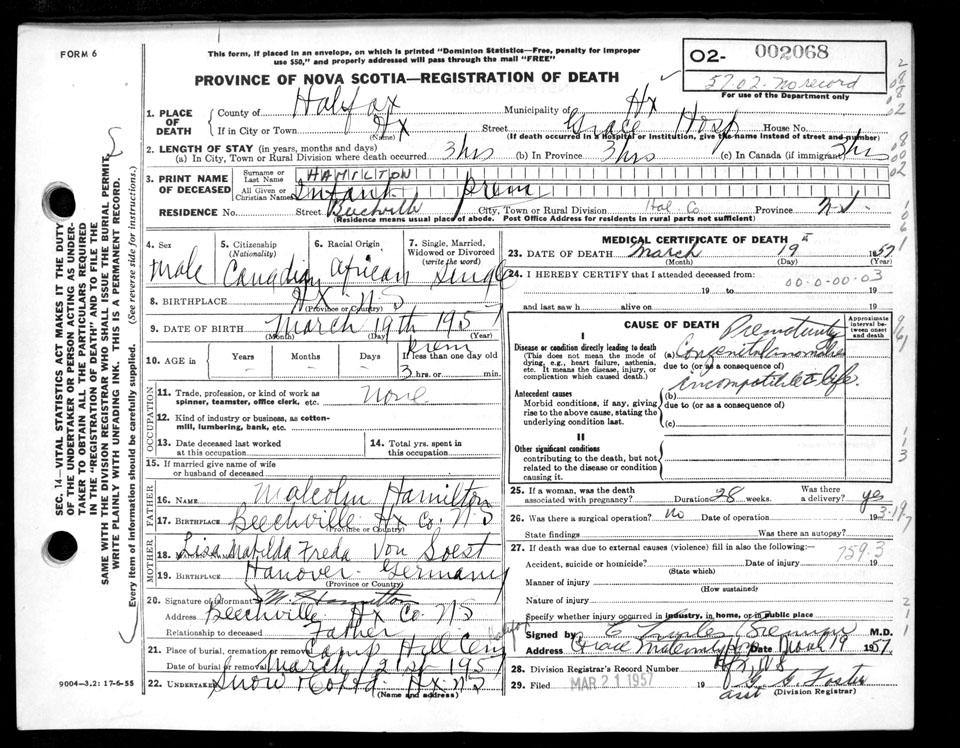 FORM 6
This form, if placed in an envelope, on which is printed "Dominion Statistics—Free, penalty for improper
use $50," and properly addressed will pass through the mail "FREE"
PROVINCE OF NOVA SCOTIA—REGISTRATION OF DEATH
02- 002068
5702- No record
For use of the Department only
1. PLACE OF DEATH
County of Halifax Municipality of Hx
If in City or Town Hx Street Grace Hosp House No.
(Name) (If death occurred in a Hospital or Institution, give the name instead of street and number)
2. LENGTH OF STAY (in years, months and days)
(a) In City, Town or Rural Division where death occurred 3 hrs (b) In Province 3 hrs (c) In Canada (if immigrant) 3 hrs
3. PRINT NAME OF DECEASED
Surname or Last Name HAMILTON
All Given or Christian Names Infant Prem
RESIDENCE No. Street Beechville City, Town or Rural Division Hal. Co. Province N.S.
(Residence means usual place of abode. Post Office Address for residents in rural parts not sufficient)
4. Sex Male
5. Citizenship (Nationality) Canadian
6. Racial Origin African
7. Single, Married, Widowed or Divorced (write the word) Single
8. BIRTHPLACE Hx NS
(Province or Country)
9. DATE OF BIRTH March 19th 1957
(Month) (Day) (Year)
10. AGE in Years Months Days If less than one day old
Prem
3 hrs. or min.
OCCUPATION
11. Trade, profession, or kind of work as
spinner, teamster, office clerk, etc. None
12. Kind of industry or business, as cotton-
mill, lumbering, bank, etc.
13. Date deceased last worked
at this occupation
14. Total yrs. spent in
this occupation
15. If married give name of wife
or husband of deceased
FATHER
16. NAME Malcolm Hamilton
17. BIRTHPLACE Beechville Hx Co. NS
(Province or Country)
MOTHER
18. Lisa Matilda Freda Von Soest
19. BIRTHPLACE Hanover Germany
(Province or Country)
20. Signature of informant M. Hamilton
Address Beechville Hx Co. NS
Relationship to deceased Father
21. Place of burial, cremation or removal Camp Hill Cem Halifax
Date of burial or removal March 21st 1957
22. UNDERTAKER Snow & Co Ltd. Hx. NS
(Name and address)
MEDICAL CERTIFICATE OF DEATH
23. DATE OF DEATH March 19 1957
(Month) (Day) (Year)
24. I HEREBY CERTIFY that I attended deceased from:
19 to 19
00-0-00-03
and last saw h alive on 19
CAUSE OF DEATH
Approximate interval between onset and death
I
Disease or condition directly leading to death
(This does not mean the mode of
dying, e.g., heart failure, asthenia,
etc. It means the disease, injury, or
complication which caused death.)
Prematurity
(a) Congenital anomalies
due to (or as a consequence of)
incompatible to life
Antecedent causes
Morbid conditions, if any, giving
rise to the above cause, stating the
underlying condition last.
(b)
due to (or as a consequence of)
(c)
II
Other significant conditions
contributing to the death, but not
related to the disease or condition
causing it.
25. If a woman, was the death
associated with pregnancy? Duration 28 weeks. Was there
a delivery? yes
26. Was there a surgical operation? no Date of operation 19
State findings Was there an autopsy?
27. If death was due to external causes (violence) fill in also the following:—
Accident, suicide or homicide? Date of injury 19
759.3
(State which)
Manner of injury
(How sustained)
Nature of injury
Specify whether injury occurred in industry, in home, or in public place
Signed by M.D.
Address Grace Maternity Date March 19 1957
28. Division Registrar's Record Number
29. Filed MAR 21 1957 G. G. Foster
asst (Division Registrar)
SEC. 14—VITAL STATISTICS ACT MAKES IT THE DUTY
OF THE UNDERTAKER OR PERSON ACTING AS UNDER-
TAKER TO OBTAIN ALL THE PARTICULARS REQUIRED
IN THE "REGISTRATION OF DEATH" AND TO FILE THE
SAME WITH THE DIVISION REGISTRAR WHO SHALL ISSUE THE BURIAL PERMIT.
WRITE PLAINLY WITH UNFADING INK. THIS IS A PERMANENT RECORD.
Every item of information should be carefully supplied. (See reverse side for instructions.)
9004-3.2: 17-6-55